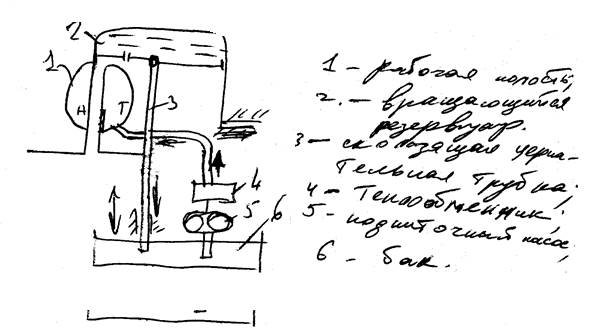 2
1
Н
Т
3
4
5
6
1 – рабочая полость,
2. – вращающийся
резервуар.
3 – скользящая черпа-
тельная трубка;
4 – Теплообменник;
5 – подпиточный насос,
6 – бак.